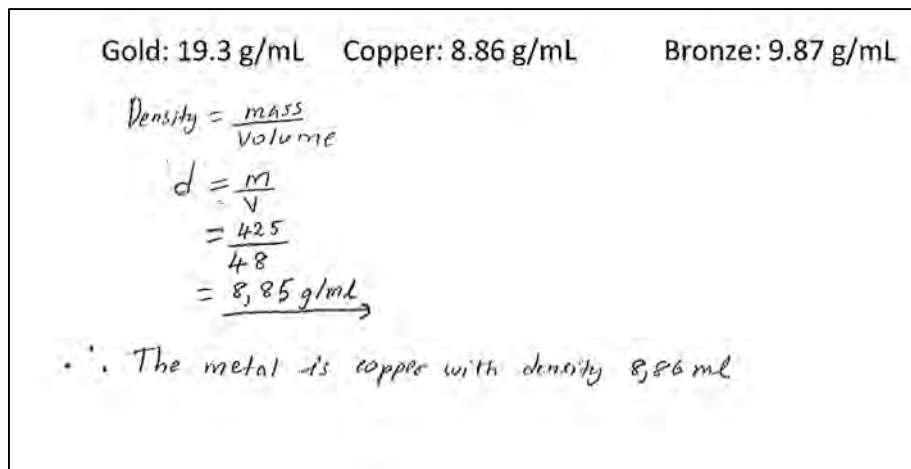 Gold: 19.3 g/mL Copper: 8.86 g/mL Bronze: 9.87 g/mL
Density = mass / Volume
d = m / V
= 425 / 48
= 8,85 g/ml
∴ The metal is copper with density 8,86 ml